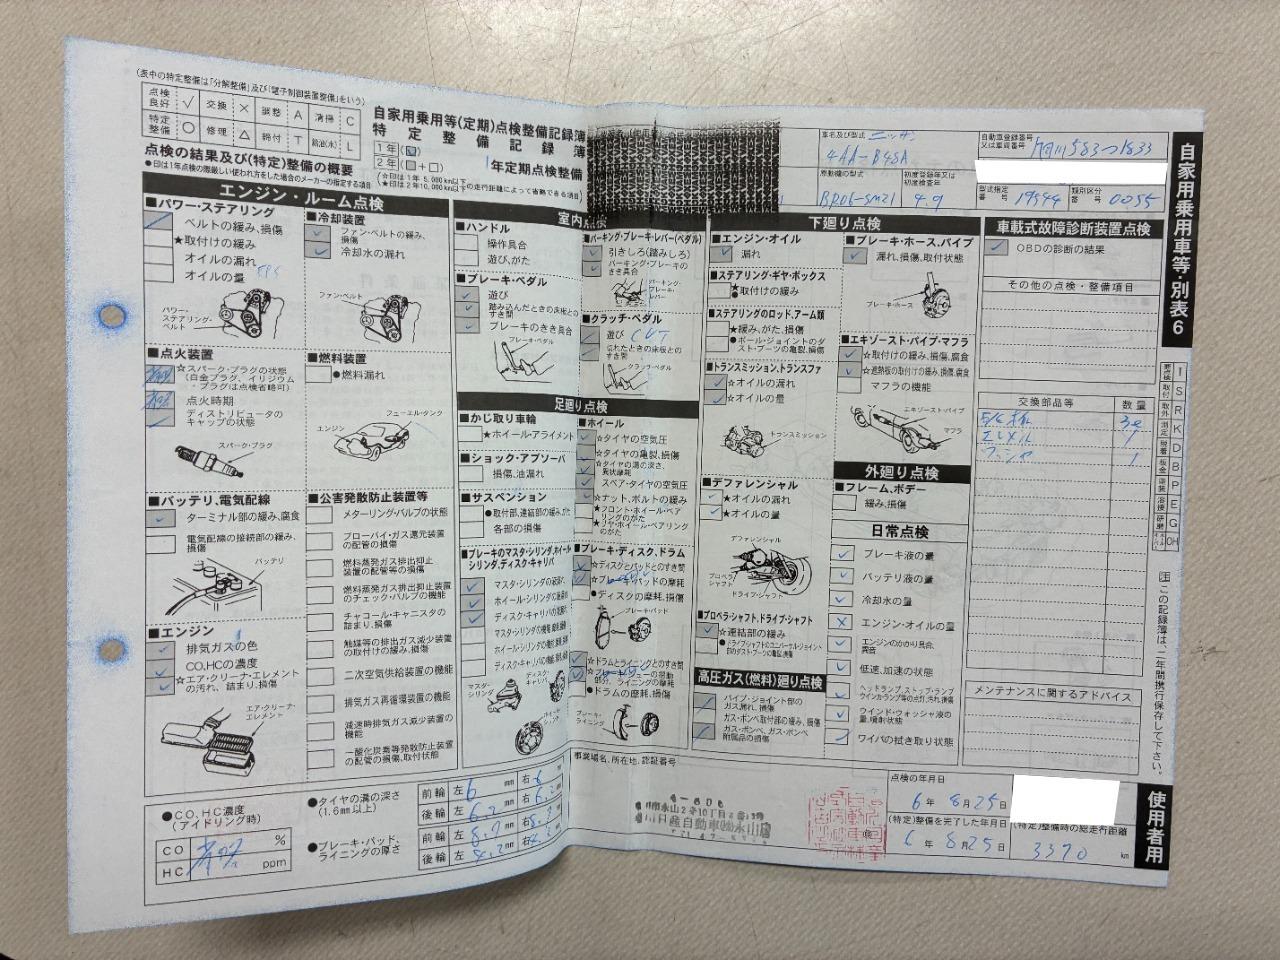 (表中の特定整備は「分解整備」及び「電子制御装置整備」をいう)
点検良好 ✓ 交換 × 調整 A 清掃 C
特定整備 ○ 修理 △ 締付 T 給油(水) L
自家用乗用等(定期)点検整備記録簿
特定整備記録簿
1年(□)
2年(□+□)
1年定期点検整備
点検の結果及び(特定)整備の概要
●印は1年点検の際厳しい使われ方をした場合のメーカーの指定する項目
(☆印は1年5,000km以下
★印は2年10,000km以下の走行距離によって省略できる項目)
車名及び型式 ニッサン
4AA-B4SA
原動機の型式
BR06-SM21
初度登録年又は初度検査年
4.9
自動車登録番号又は車両番号
583 つ 1833
型式指定番号 19544
類別区分番号 0055
自家用乗用車等・別表6
エンジン・ルーム点検
■パワー・ステアリング
ベルトの緩み、損傷
★取付けの緩み
オイルの漏れ
オイルの量 EPS
パワー・ステアリング・ベルト
■冷却装置
ファン・ベルトの緩み、損傷
冷却水の漏れ
ファン・ベルト
■点火装置
☆スパーク・プラグの状態
(白金プラグ、イリジウム・プラグは点検省略可)
点火時期
ディストリビュータのキャップの状態
スパーク・プラグ
■燃料装置
●燃料漏れ
フューエル・タンク
エンジン
■バッテリ、電気配線
ターミナル部の緩み、腐食
電気配線の接続部の緩み、損傷
バッテリ
■エンジン
排気ガスの色
CO,HCの濃度
☆エア・クリーナ・エレメントの汚れ、詰まり、損傷
エア・クリーナ・エレメント
■公害発散防止装置等
メターリング・バルブの状態
ブローバイ・ガス還元装置の配管の損傷
燃料蒸発ガス排出抑止装置の配管等の損傷
燃料蒸発ガス排出抑止装置のチェック・バルブの機能
チャコール・キャニスタの詰まり、損傷
触媒等の排出ガス減少装置の取付の緩み、損傷
二次空気供給装置の機能
排気ガス再循環装置の機能
減速時排気ガス減少装置の機能
一酸化炭素等発散防止装置の配管の損傷、取付状態
室内点検
■ハンドル
操作具合
遊び、がた
■ブレーキ・ペダル
遊び
踏み込んだときの床板とのすき間
ブレーキのきき具合
ブレーキ・ペダル
■パーキング・ブレーキ・レバー(ペダル)
引きしろ(踏みしろ)
パーキング・ブレーキのきき具合
パーキング・ブレーキ・レバー
■クラッチ・ペダル
遊び CVT
切れたときの床板とのすき間
クラッチ・ペダル
足廻り点検
■かじ取り車輪
★ホイール・アライメント
■ショック・アブソーバ
損傷、油漏れ
■サスペンション
●取付部、連結部の緩み、がた
各部の損傷
■ブレーキのマスタ・シリンダ、ホイール・シリンダ、ディスク・キャリパ
マスタ・シリンダの液漏れ
ホイール・シリンダの液漏れ
ディスク・キャリパの液漏れ
マスタ・シリンダの機能、摩耗、損傷
マスタ・シリンダ
ディスク・キャリパ
■ホイール
☆タイヤの空気圧
☆タイヤの亀裂、損傷
☆タイヤの溝の深さ、異状摩耗
スペア・タイヤの空気圧
☆ナット、ボルトの緩み
★フロント・ホイール・ベアリングのがた
★リヤ・ホイール・ベアリングのがた
■ブレーキ・ディスク、ドラム
☆ディスクとパッドとのすき間
☆ブレーキ・パッドの摩耗
●ディスクの摩耗、損傷
ブレーキ・パッド
☆ドラムとライニングとのすき間
●ドラムの摩耗、損傷
ブレーキ・ライニング
下廻り点検
■エンジン・オイル
漏れ
■ステアリング・ギヤ・ボックス
★●取付けの緩み
■ステアリングのロッド、アーム類
★緩み、がた、損傷
●ボール・ジョイントのダスト・ブーツの亀裂、損傷
■トランスミッション、トランスファ
☆オイルの漏れ
☆オイルの量
トランスミッション
■デファレンシャル
★オイルの漏れ
★オイルの量
デファレンシャル
プロペラ・シャフト
ドライブ・シャフト
■プロペラ・シャフト、ドライブ・シャフト
☆連結部の緩み
●ドライブ・シャフトのユニバーサル・ジョイント部のダスト・ブーツの亀裂、損傷
高圧ガス(燃料)廻り点検
パイプ・ジョイント部のガス漏れ、損傷
ガス・ボンベ取付部の緩み、損傷
ガス・ボンベ、ガス・ボンベ附属品の損傷
■ブレーキ・ホース、パイプ
漏れ、損傷、取付状態
ブレーキ・ホース
■エキゾースト・パイプ・マフラ
☆取付けの緩み、損傷、腐食
☆遮熱板の取付けの緩み、損傷、腐食
マフラの機能
エキゾースト・パイプ
マフラ
外廻り点検
■フレーム、ボデー
緩み、損傷
日常点検
ブレーキ液の量
バッテリ液の量
冷却水の量
エンジン・オイルの量
エンジンのかかり具合、異音
低速、加速の状態
ヘッドランプ、ストップ・ランプ、ウインカランプ等の点灯、汚れ、損傷
ウインド・ウォッシャ液の量、噴射状態
ワイパの拭き取り状態
車載式故障診断装置点検
OBDの診断の結果
その他の点検・整備項目
交換部品等 数量
1
1
メンテナンスに関するアドバイス
I
S
R
K
D
B
P
E
G
OH
注 この記録簿は、二年間携行保存して下さい。
使用者用
●CO,HC濃度(アイドリング時)
CO %
HC ppm
●タイヤの溝の深さ(1.6mm以上)
前輪 左 6 mm 右 6 mm
後輪 左 6.2 右 6.2
●ブレーキ・パッド、ライニングの厚さ
前輪 左 8.7
後輪 左 4.2
事業場名、所在地、認証番号
永山2条10丁目
日産自動車 永山店
点検の年月日
6年 8月 25日
(特定)整備を完了した年月日
6年 8月 25日
(特定)整備時の総走行距離
3370 km